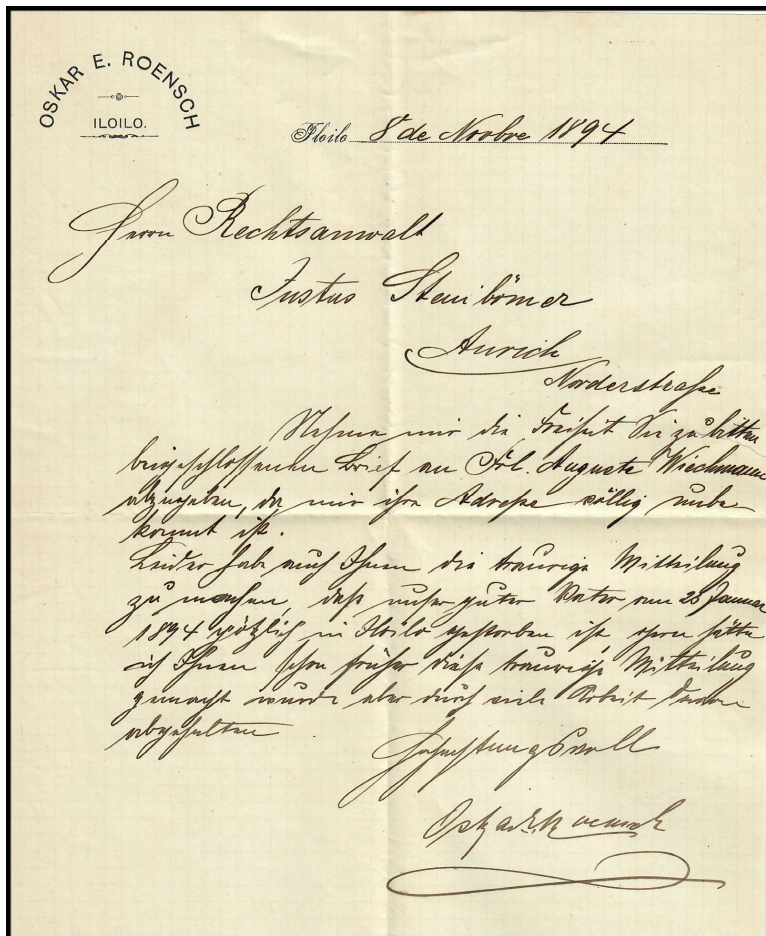 OSKAR E. ROENSCH
ILOILO.
Iloilo 8 de Novbre 1894
Herrn Rechtsanwalt
Justus Steinbömer
Aurich
Norderstraße
Nehme mir die Freiheit Sie zu bitten
beigeschlossenen Brief an Frl. Auguste Wiechmann
abzugeben, da mir ihre Adresse völlig unbe
kannt ist.
Leider habe auch Ihnen die traurige Mitteilung
zu machen, daß unser guter Vater am Januar
1894 plötzlich in Iloilo gestorben ist, gern hätte
ich Ihnen schon früher diese traurige Mitteilung
gemacht wurde aber durch viele Arbeit davon
abgehalten
Hochachtungsvoll
Oskar E. Roensch